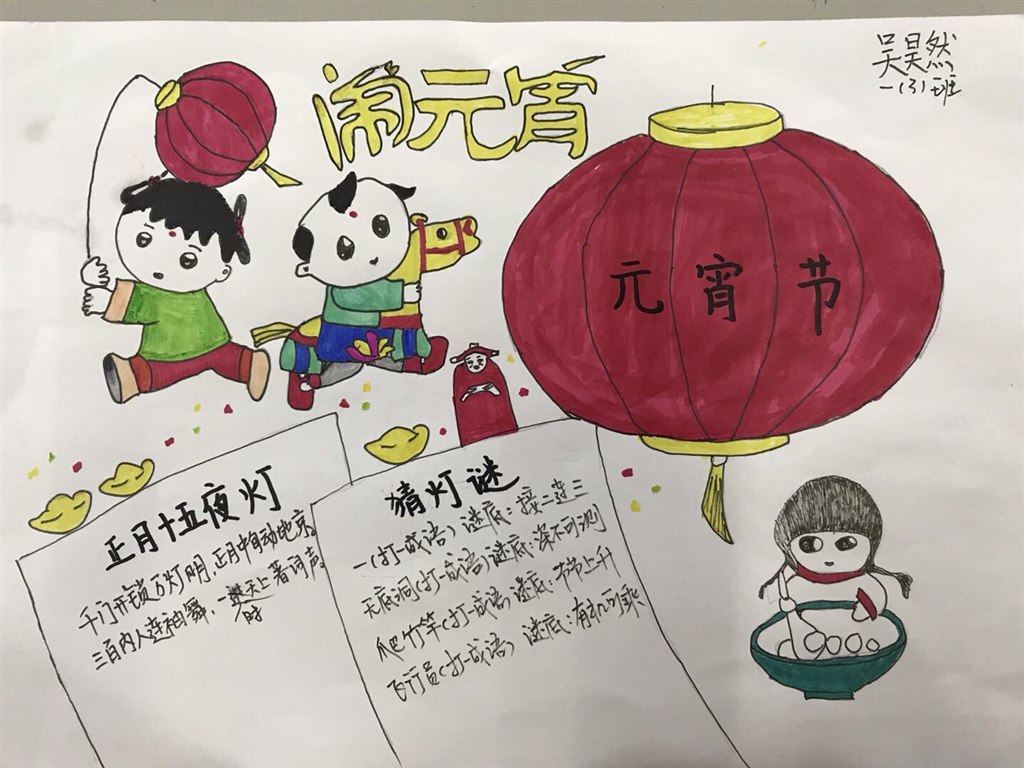 吴昊然
一(3)班
闹元宵
元宵节
正月十五夜灯
千门开锁万灯明,正月中旬动地京。
三百内人连袖舞,一时天上著词声。
猜灯谜
一(打一成语)谜底:接二连三
无底洞(打一成语)谜底:深不可测
爬竹竿(打一成语)谜底:节节上升
飞行员(打一成语)谜底:有机可乘